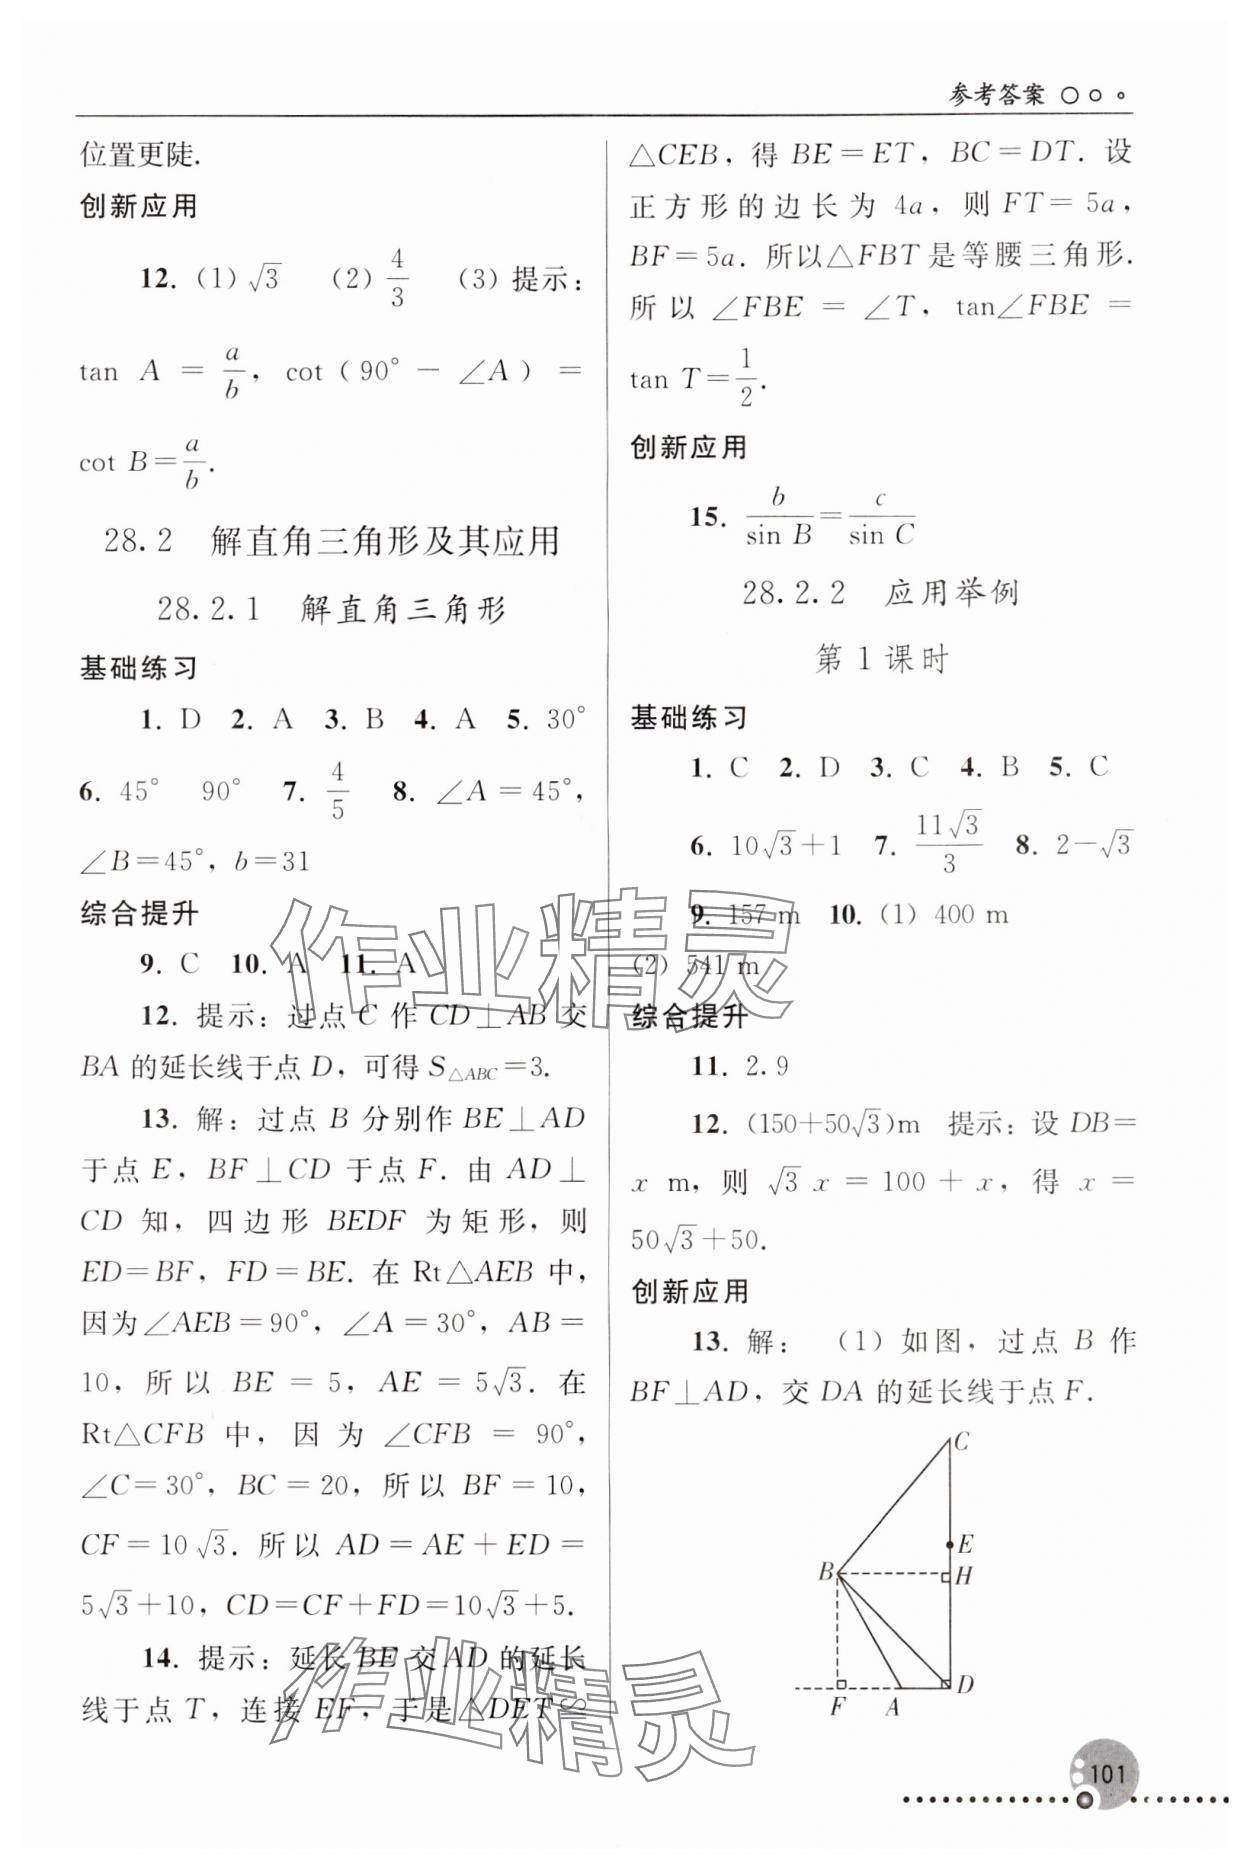 参考答案
位置更陡.
创新应用
12. (1) √3  (2) 4/3  (3) 提示:
tan A = a/b, cot(90° − ∠A) =
cot B = a/b.
28.2 解直角三角形及其应用
28.2.1 解直角三角形
基础练习
1. D 2. A 3. B 4. A 5. 30°
6. 45° 90° 7. 4/5 8. ∠A=45°,
∠B=45°, b=31
综合提升
9. C 10. A 11. A
12. 提示: 过点 C 作 CD⊥AB 交
BA 的延长线于点 D, 可得 S△ABC=3.
13. 解: 过点 B 分别作 BE⊥AD
于点 E, BF⊥CD 于点 F. 由 AD⊥
CD 知, 四边形 BEDF 为矩形, 则
ED=BF, FD=BE. 在 Rt△AEB 中,
因为∠AEB=90°, ∠A=30°, AB=
10, 所以 BE=5, AE=5√3. 在
Rt△CFB 中, 因为 ∠CFB=90°,
∠C=30°, BC=20, 所以 BF=10,
CF=10√3. 所以 AD=AE+ED=
5√3+10, CD=CF+FD=10√3+5.
14. 提示: 延长 BE 交 AD 的延长
线于点 T, 连接 EF, 于是△DET≌
△CEB, 得 BE=ET, BC=DT. 设
正方形的边长为 4a, 则 FT=5a,
BF=5a. 所以△FBT 是等腰三角形.
所以 ∠FBE=∠T, tan∠FBE=
tan T=1/2.
创新应用
15. b/sin B = c/sin C
28.2.2 应用举例
第 1 课时
基础练习
1. C 2. D 3. C 4. B 5. C
6. 10√3+1 7. 11√3/3 8. 2−√3
9. 157 m 10. (1) 400 m
(2) 541 m
综合提升
11. 2.9
12. (150+50√3)m 提示: 设 DB=
x m, 则 √3 x=100+x, 得 x=
50√3+50.
创新应用
13. 解: (1) 如图, 过点 B 作
BF⊥AD, 交 DA 的延长线于点 F.
C
E
B
H
F
A
D
101
作业精灵
作业精灵